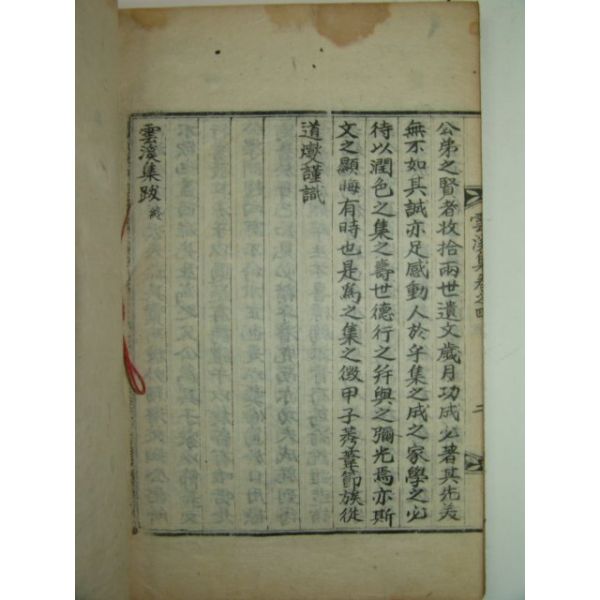 雲溪集卷之四
二
公弟之賢者收拾兩世遺文歲月功成必著其先美
無不如其誠亦足感動人於乎集之成之家學之必
待以潤色之集之壽世德行之幷與之彌光焉亦斯
文之顯晦有時也是爲之集之徵甲子蕤賓節族從
道燮謹識
雲溪集跋終